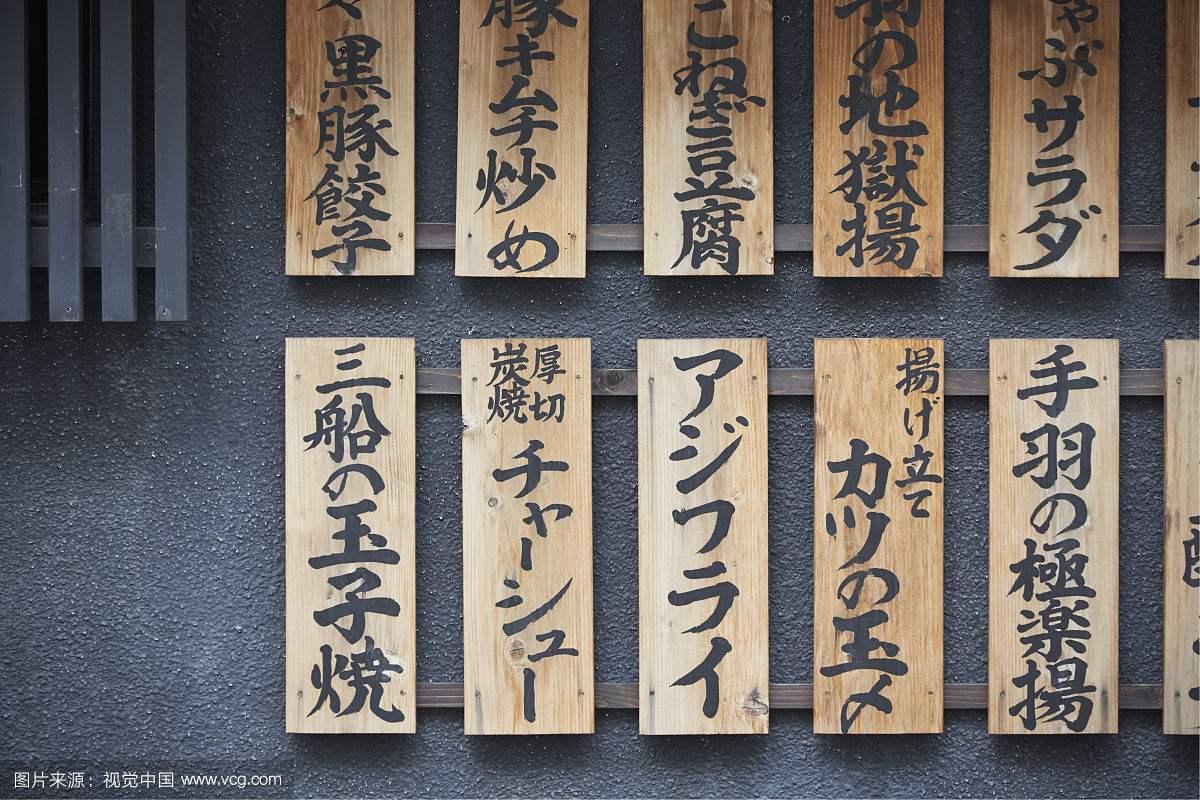 ゃぶサラダ
羽の地獄揚
こねぎ豆腐
豚キムチ炒め
黒豚餃子
手羽の極楽揚
揚げ立て
カツの玉〆
アジフライ
厚切
炭焼
チャーシュー
三船の玉子焼
图片来源：视觉中国 www.vcg.com